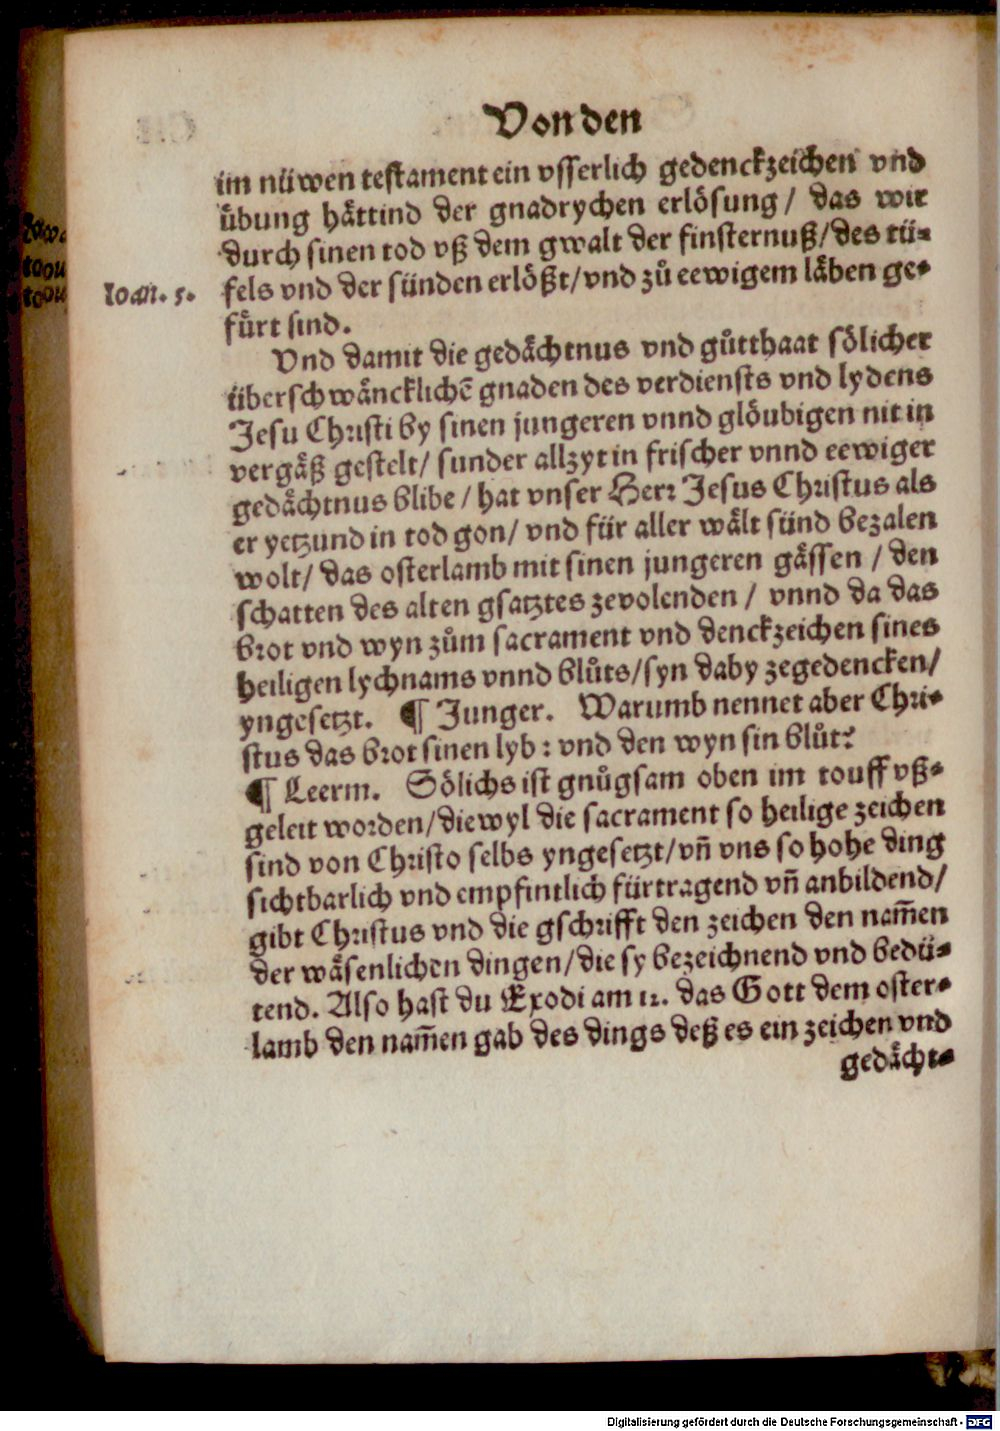 Von den
im nüwen testament ein vsserlich gedenckzeichen vnd
übung hättind der gnadrychen erlösung / das wir
durch sinen tod vß dem gwalt der finsternuß / des tü-
Ioan. 5.
fels vnd der sünden erlößt / vnd zů eewigem läben ge-
fürt sind.
Vnd damit die gedächtnus vnd gůtthaat sölicher
überschwäncklichē gnaden des verdiensts vnd lydens
Jesu Christi by sinen jungeren vnnd glöubigen nit in
vergäß gestelt / sunder allzyt in frischer vnnd eewiger
gedächtnus blibe / hat vnser Herr Jesus Christus als
er yetzund in tod gon / vnd für aller wält sünd bezalen
wolt / das osterlamb mit sinen jungeren gässen / den
schatten des alten gsatztes zevolenden / vnnd da das
brot vnd wyn zům sacrament vnd denckzeichen sines
heiligen lychnams vnnd blůts / syn daby zegedencken /
yngesetzt. ¶ Junger. Warumb nennet aber Chri-
stus das brot sinen lyb : vnd den wyn sin blůt?
¶ Leerm. Sölichs ist gnůgsam oben im touff vß-
geleit worden / diewyl die sacrament so heilige zeichen
sind von Christo selbs yngesetzt / vñ vns so hohe ding
sichtbarlich vnd empfintlich fürtragend vñ anbildend /
gibt Christus vnd die gschrifft den zeichen den nam̄en
der wäsenlichen dingen / die sy bezeichnend vnd bedü-
tend. Also hast du Exodi am 12. das Gott dem oster-
lamb den nam̄en gab des dings deß es ein zeichen vnd
gedächt-
Digitalisierung gefördert durch die Deutsche Forschungsgemeinschaft - DFG